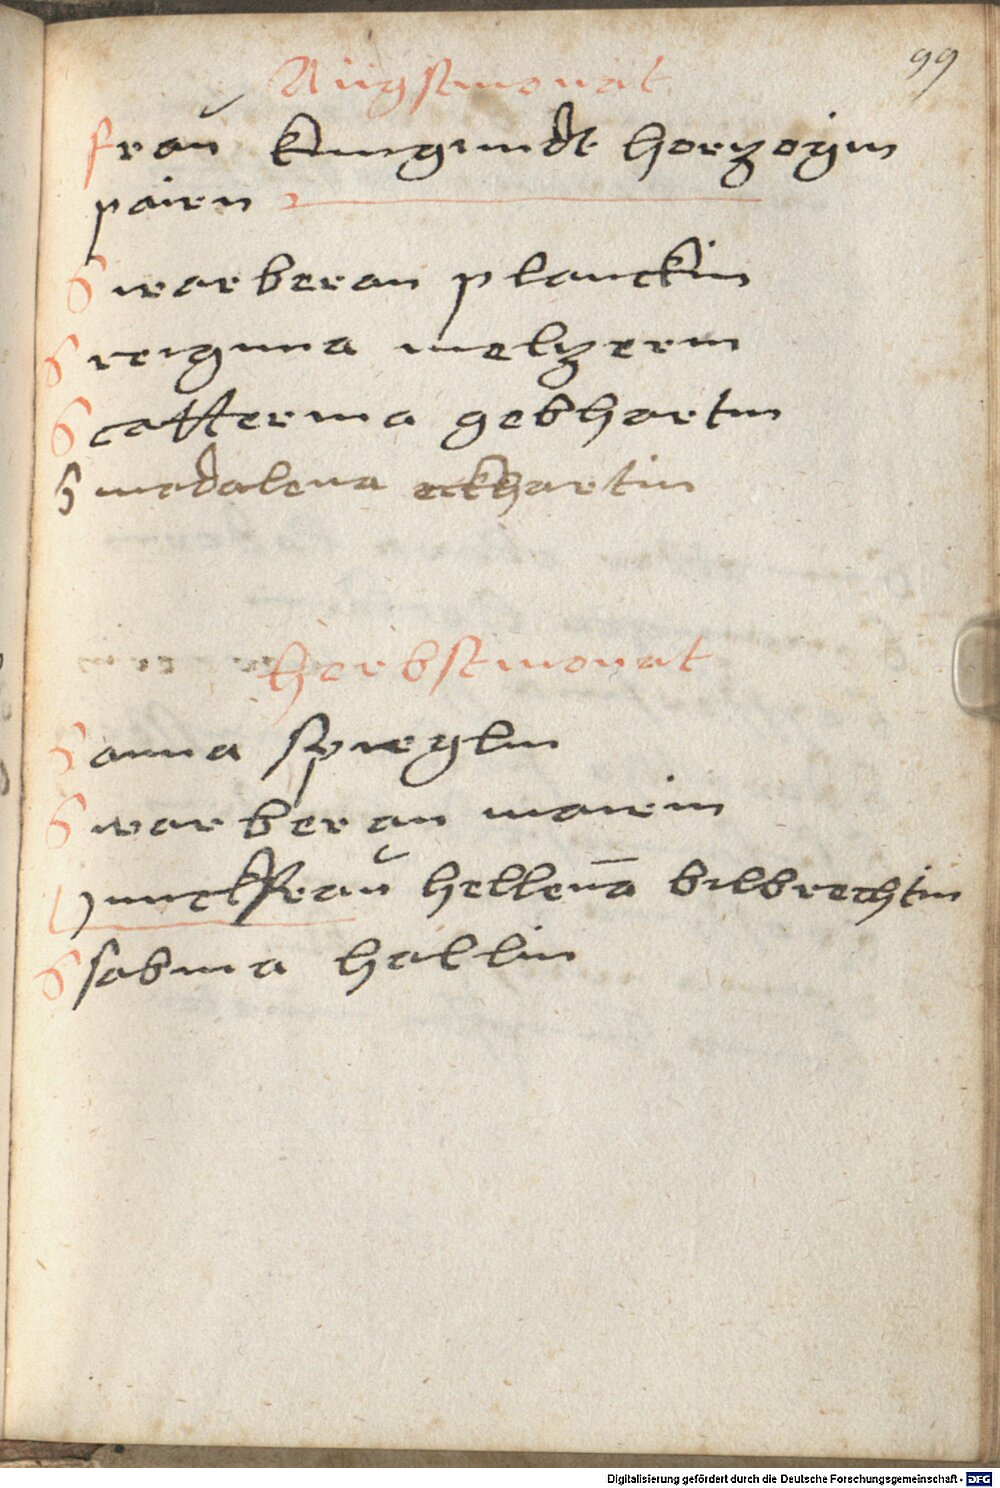 99
Augstmonat
fraŭ kungundt hertzogin
pairn
S warberan planckin
S reigunna meltzerin
S catterina gebhartin
S madalena eckhartin
Herbstmonat
S anna spieglin
S warberan mairin
Junckfraŭ hellena̅ bilbrechtin
S sabina hallin
Digitalisierung gefördert durch die Deutsche Forschungsgemeinschaft - DFG